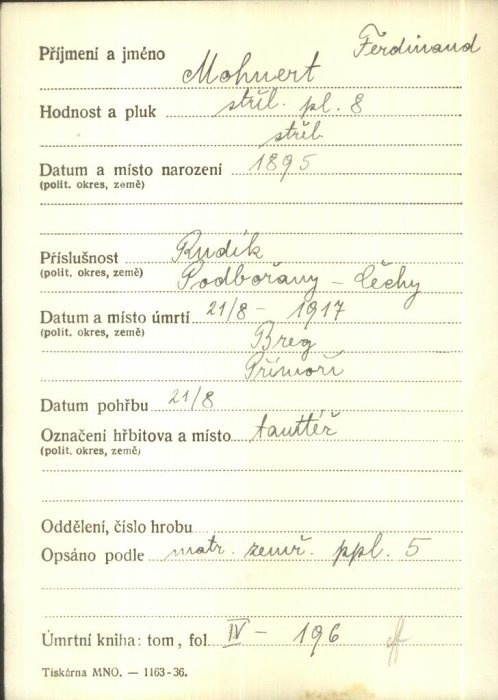 Příjmení a jméno Mohnert Ferdinand
Hodnost a pluk střl. pl. 8
střl.
Datum a místo narození 1895
(polit. okres, země)
Příslušnost Rudík
(polit. okres, země) Podbořany - Čechy
Datum a místo úmrtí 21/8 - 1917
(polit. okres, země) Breg
Přímoří
Datum pohřbu 21/8
Označení hřbitova a místo tamtéž
(polit. okres, země)
Oddělení, číslo hrobu
Opsáno podle matr. zemř. ppl. 5
Úmrtní kniha: tom, fol. IV - 196
Tiskárna MNO. — 1163-36.